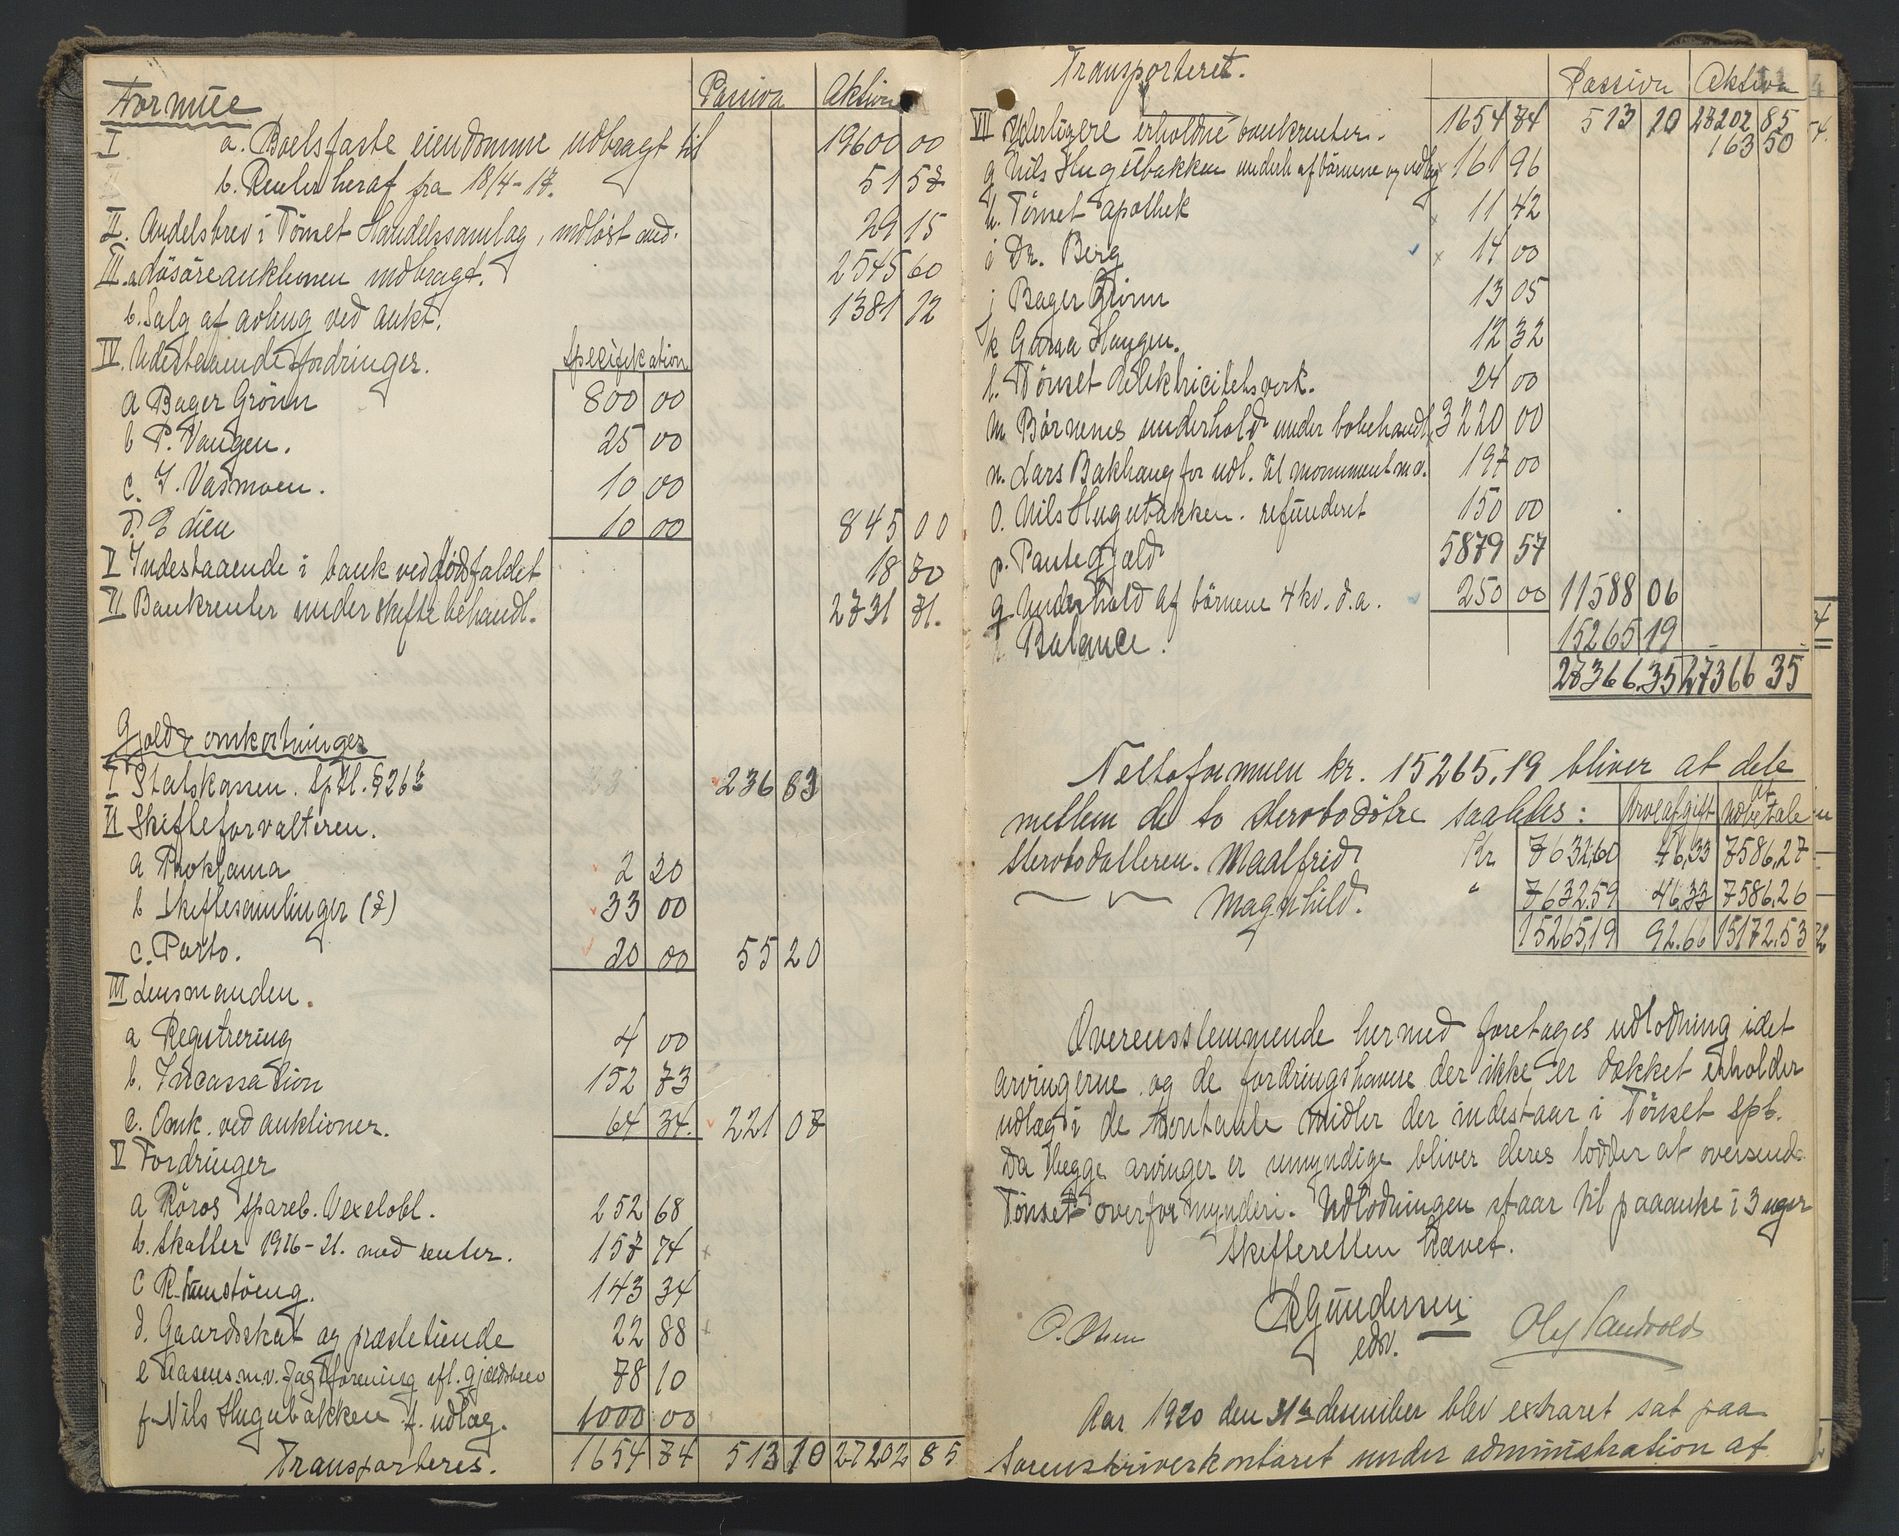 Passiva Aktiva
Formue
I a. Boets faste eiendomme udbragt til 19600 00
b. Renter heraf fra 18/4-17. 51 57
II. Andelsbrev i Tönset Handelssamlag, indlöst med. 29 15
III. a. Lösöreauktionen indbragt. 2545 60
b. Salg af avling ved aukt. 1381 12
IV. Udestaaende fordringer. Specifikation
a Bager Grönn 800 00
b P. Vangen. 25 00
c. I. Vasmoen. 10 00
d. E dien 10 00 845 00
V Indestaaende i bank ved dödsfaldet 18 70
VI Bankrenter under skiftebehandl. 2731 71.
Gjeld & omkostninger
I Statskassen. Sptl. § 26 b 236 83
II Skifteforvalteren.
a Proklama 2 20
b Skiftesamlinger (7) 33 00
c. Porto. 20 00 55 20
III Lensmanden.
a Registrering 4 00
b. Incassation 152 73
c. Omk. ved auktioner. 64 34. 221 07
V Fordringer
a Röros spareb. Vexelobl. 252 68
b. Skatter 1916-21. med renter. 157 74
c R. Tamstöeng. 143 34
d. Gaardsskat og præstetiende 22 88
e Aasens m.v. Jagtforening efl. gjældsbrev 78 10
f Nils Hugubakken f. udlæg. 1000 00
Transporteres. 1654 74 513 10 27202 85
Transporteret. Passiva Aktiva
1654 74 513 10 27202 85
VII Yderligere erholdne bankrenter. 163 50
g Nils Hugubakken underh af börnene og udlæg 161 96
h. Tönset apothek 11 42
i Dr. Berg 14 00
j Bager Grönn 13 05
k Gurua Haugen. 12 32
l. Tönset elektricitetsverk. 24 00
m Börnenes underhold under bobehandl. 3220 00
n. Lars Bakhaug for udl. til monument m.v. 197 00
o. Nils Hugubakken. refunderet 150 00
p. Pantegjæld 5879 57
q Underhold af börnene 4 kv. d.a. 250 00 11588 06
r Balance. 15265 19
27366.35 27366 35
Nettoformuen kr. 15265,19 bliver at dele
mellem de to sterbodötre saaledes: Arveafgift at udbetale
Sterbodatteren. Maalfrid Kr 7632,60 46,33 7586,27
— " — Magnhild. " 7632.59 46,33 7586,26
15265,19 92.66 15172.53
Overensstemmende hermed foretages udlodning idet
arvingerne og de fordringshavere der ikke er dækket erholder
udlæg i de kontante midler der indestaar i Tönset spb.
Da begge arvinger er umyndige bliver deres lodder at oversende
Tönset overformynderi. Udlodningen staar til paaanke i 3 uger
Skifteretten hævet.
R Gundersen
edsv.
O. Olsen Olaf Sandvold
Aar 1920 den 31te desember blev extraret sat paa
Sorenskriverkontoret under administration af